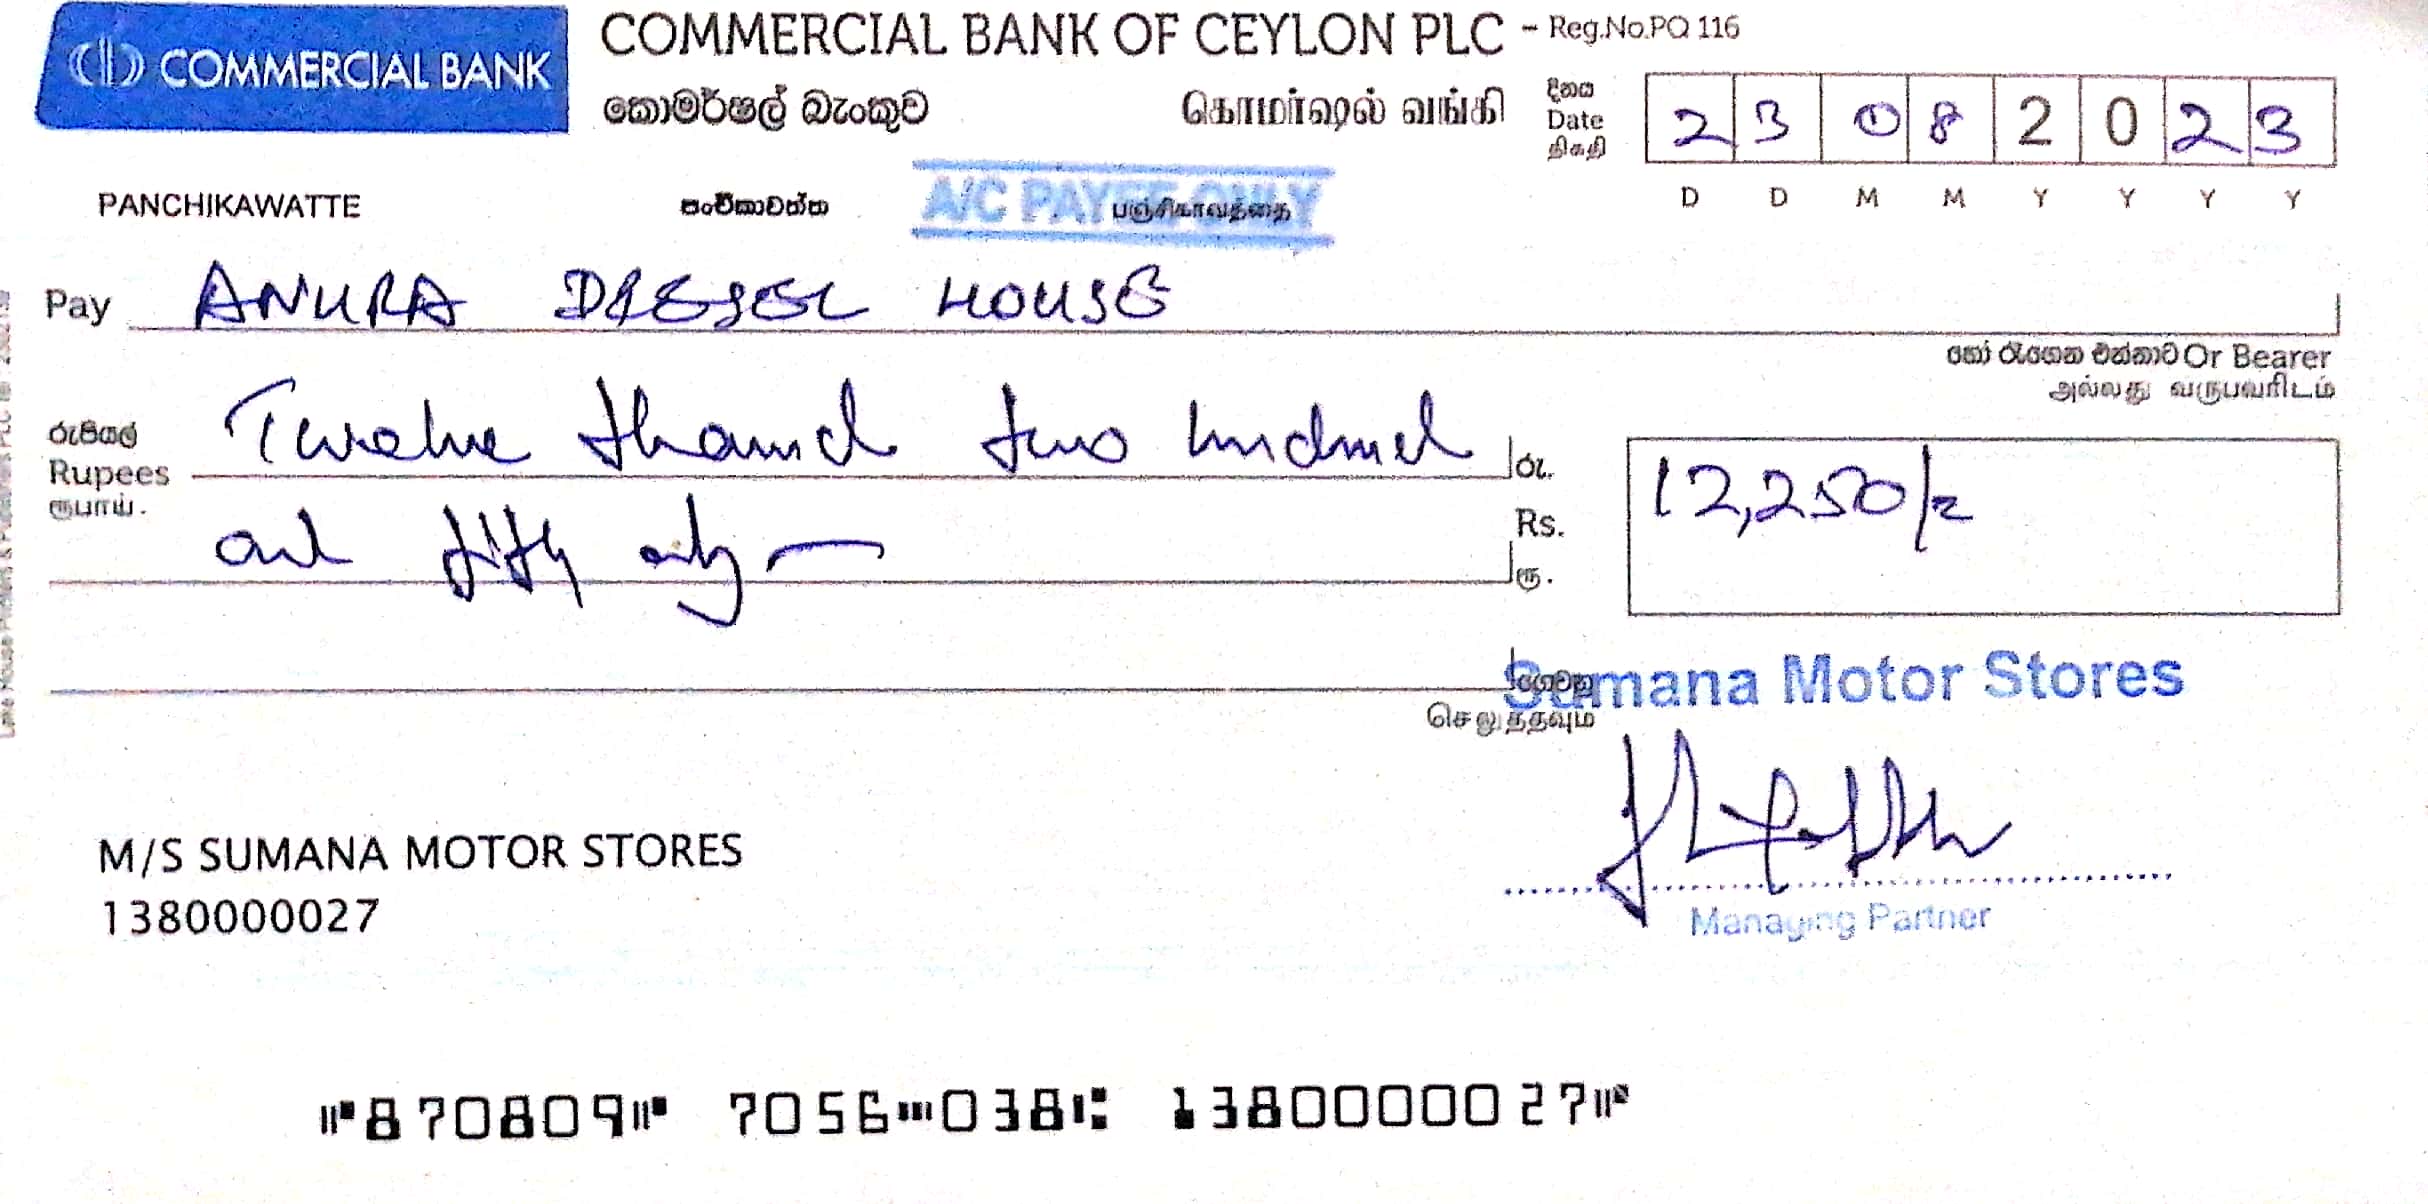 COMMERCIAL BANK
COMMERCIAL BANK OF CEYLON PLC - Reg.No.PQ 116
කොමර්ෂල් බැංකුව கொமர்ஷல் வங்கி
දිනය
Date
திகதி
2 3 0 8 2 0 2 3
D D M M Y Y Y Y
PANCHIKAWATTE පංචිකාවත්ත பஞ்சிகாவத்தை
A/C PAYEE ONLY
Pay ANURA DIESEL HOUSE
හෝ රැගෙන එන්නාට Or Bearer
அல்லது வருபவரிடம்
රුපියල්
Rupees
ரூபாய்.
Twelve thousand two hundred
and fifty only
රු.
Rs.
ரூ.
12,250/=
ගෙවනු
செலுத்தவும்
Sumana Motor Stores
M/S SUMANA MOTOR STORES
1380000027
Managing Partner
⑈870809⑈ 7056⑉038⑆ 1380000027⑈